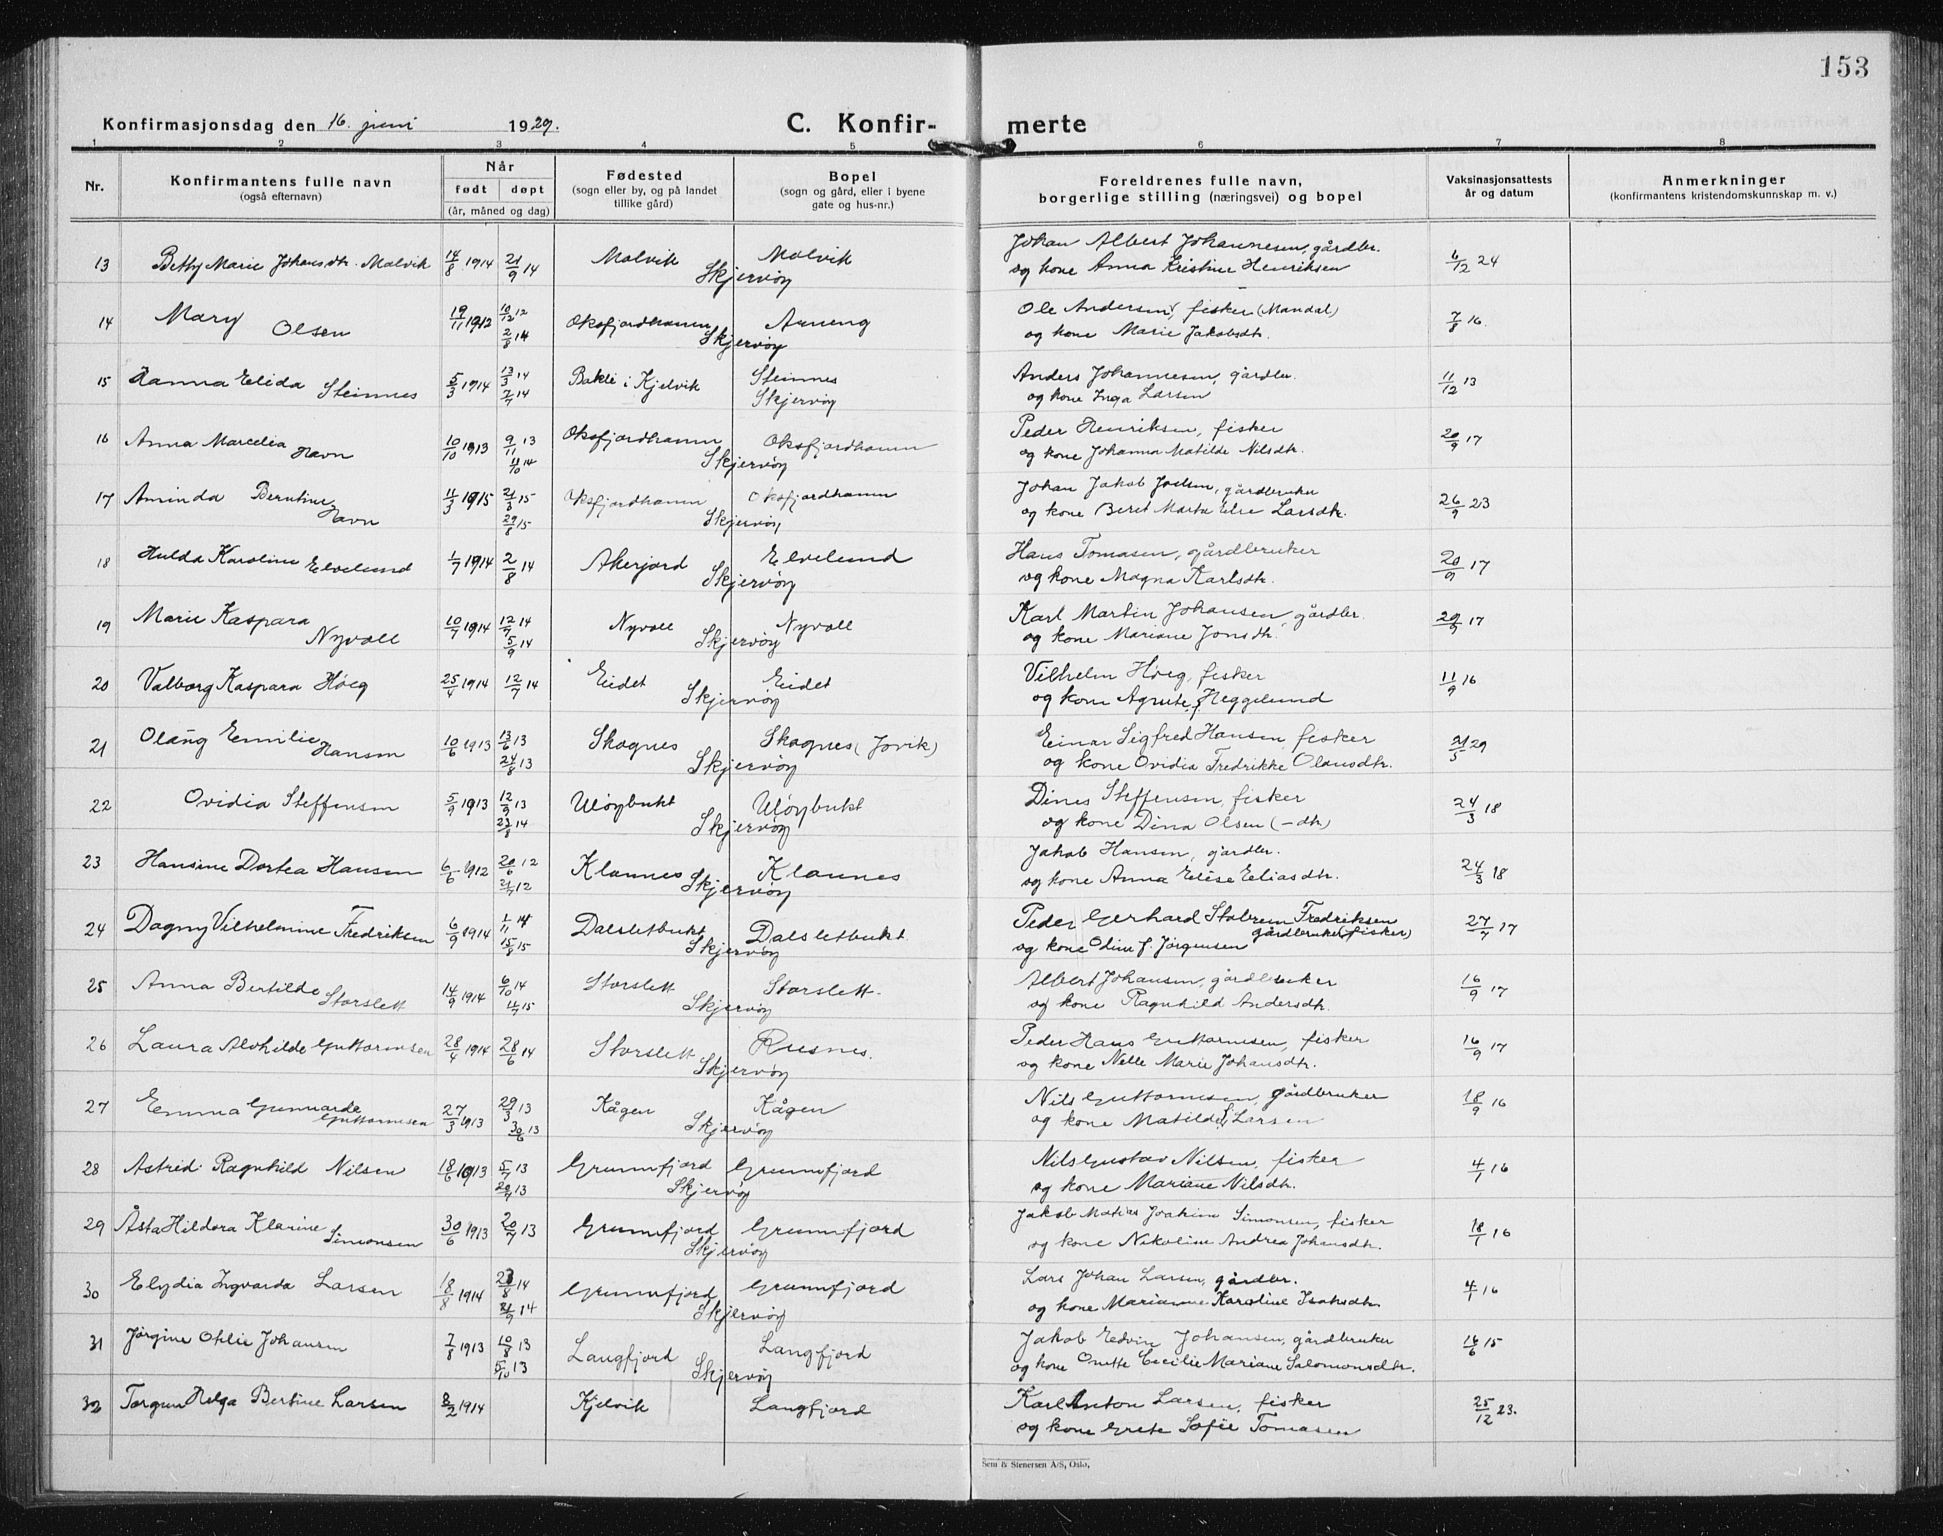 153
Konfirmasjonsdag den 16. juni 1929.
C. Konfir-
merte
1 2 3 4 5 6 7 8
Nr.
Konfirmantens fulle navn
(også efternavn)
Når
født døpt
(år, måned og dag)
Fødested
(sogn eller by, og på landet
tillike gård)
Bopel
(sogn og gård, eller i byene
gate og hus-nr.)
Foreldrenes fulle navn,
borgerlige stilling (næringsvei) og bopel
Vaksinasjonsattests
år og datum
Anmerkninger
(konfirmantens kristendomskunnskap m. v.)
13 Betty Marie Johansdtr. Molvik 14/8 1914 21/9 14 Molvik Molvik Johan Albert Johannesen, gårdbr. 6/12 24
Skjervöy og kone Anna Kristine Henriksen
14 Mary Olsen 19/11 1912 10/12 12 Oksfjordhamn Arneng Ole Andersen, fisker (Mandal) 7/8 16.
2/8 14 Skjervöy og kone Marie Jakobsdtr.
15 Hanna Elida Steinnes 5/3 1914 13/3 14 Bakli i Kjelvik Steinnes Anders Johannesen, gårdbr. 11/12 13
7/7 14 Skjervöy og kone Inga Larsen
16 Anna Marcelia Havn 10/10 1913 9/11 13 Oksfjordhamn Oksfjordhamn Peder Henriksen, fisker 20/9 17
11/10 14 Skjervöy og kone Johanna Matilde Nilsdtr.
17 Aminda Berntine Havn 11/3 1915 21/3 15 Oksfjordhamn Oksfjordhamn Johan Jakob Joelsen, gårdbruker 26/9 23
29/8 15 Skjervöy og kone Beret Marta Elre Larsdtr.
18 Hulda Karoline Elvelund 1/7 1914 2/8 14 Akerjord Elvelund Hans Tomasen, gårdbruker 20/9 17
Skjervöy og kone Magna Karlsdtr.
19 Marie Kaspara Nyvoll 10/7 1914 12/7 14 Nyvoll Nyvoll Karl Martin Johansen, gårdbr. 20/9 17
5/9 14 Skjervöy og kone Mariane Jonsdtr.
20 Valborg Kaspara Höeg 25/4 1914 12/7 14 Eidet Eidet Vilhelm Höeg, fisker 11/9 16
Skjervöy og kone Agnete f. Heggelund
21 Olaug Emilie Hansen 10/6 1913 13/6 13 Skognes Skognes (Jovik) Einar Sigfred Hansen, fisker 31/5 29
24/8 13 Skjervöy og kone Ovidia Fredrikke Olausdtr.
22 Ovidia Steffensen 5/9 1913 12/9 13 Ulöybukt Ulöybukt Dines Steffensen, fisker 24/3 18
23/8 14 Skjervöy og kone Dina Olsen (- dtr)
23 Hansine Dortea Hansen 6/6 1912 20/6 12 Klaunes Klaunes Jakob Hansen, gårdbr. 24/3 18
21/7 12 Skjervöy og kone Anna Elise Eliasdtr.
24 Dagny Vilhelmine Fredriksen 6/9 1914 1/11 14 Dalsletbukt Dalsletbukt. Peder Gerhard Stabrem Fredriksen 27/7 17
gårdbruker (fisker)
15/8 15 Skjervöy og kone Odine f. Jørgensen
25 Anna Bertilde Storslett 14/9 1914 6/10 14 Storslett Storslett. Albert Johansen, gårdbruker 16/9 17
11/7 15 Skjervöy og kone Ragnhild Andersdtr.
26 Laura Alvhilde Guttormsen 28/4 1914 28/6 14 Storslett Rusnes. Peder Hans Guttormsen, fisker 16/9 17
Skjervöy og kone Nelle Marie Johansdtr.
27 Emma Gunvarda Guttormsen 27/3 1913 29/3 13 Kågen Kågen Nils Guttormsen, gårdbruker 18/9 16
30/6 13 Skjervöy og kone Matilde f. Larsen
28 Astrid Ragnhild Nilsen 18/6 1913 5/7 13 Grunnfjord Grunnfjord Nils Gustav Nilsen, fisker 4/1 16
20/7 13 Skjervöy og kone Mariane Nilsdtr.
29 Åsta Hildora Klarine Simonsen 30/6 1913 20/7 13 Grunnfjord Grunnfjord Jakob Matias Joakim Simonsen, fisker 18/1 16
Skjervöy og kone Nikoline Andrea Johansdtr.
30 Elydia Ingvarda Larsen 18/8 1914 23/8 14 Grunnfjord Grunnfjord Lars Johan Larsen, gårdbr. 4/1 16
21/9 14 Skjervöy og kone Marianne Karoline Isaksdtr.
31 Jørgine Otilie Johansen 7/8 1913 10/8 13 Langfjord Langfjord Jakob Edvin Johansen, gårdbruker 16/6 15
5/10 13 Skjervöy og kone Onette Cecilie Mariane Salomonsdtr.
32 Torgun Helga Bertine Larsen 8/2 1914 Kjelvik Langfjord Karl Anton Larsen, fisker 25/12 23.
og kone Grete Sofie Tomasen
Sem & Stenersen A/S, Oslo.